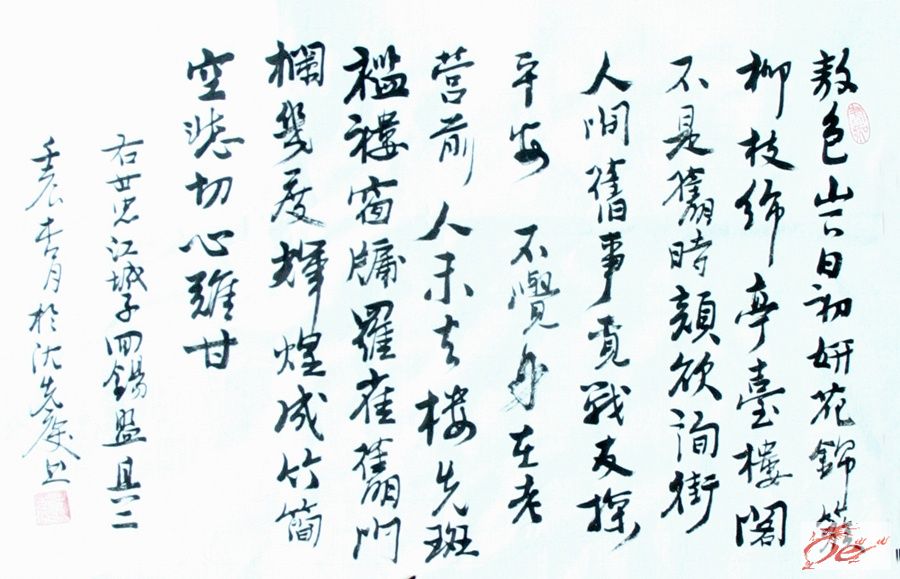 敖包山下日初妍花錦簇
柳枝綿亭臺樓閣
不是舊時顏欲詢街
人間舊事覓戰友探
平安 不覺身在老
營前 人未去樓先斑
襤褸窗牖羅雀舊門
欄幾度輝煌成竹簡
空悲切心難甘
右世忠江城子回錫盟其二
壬辰杏月於沈